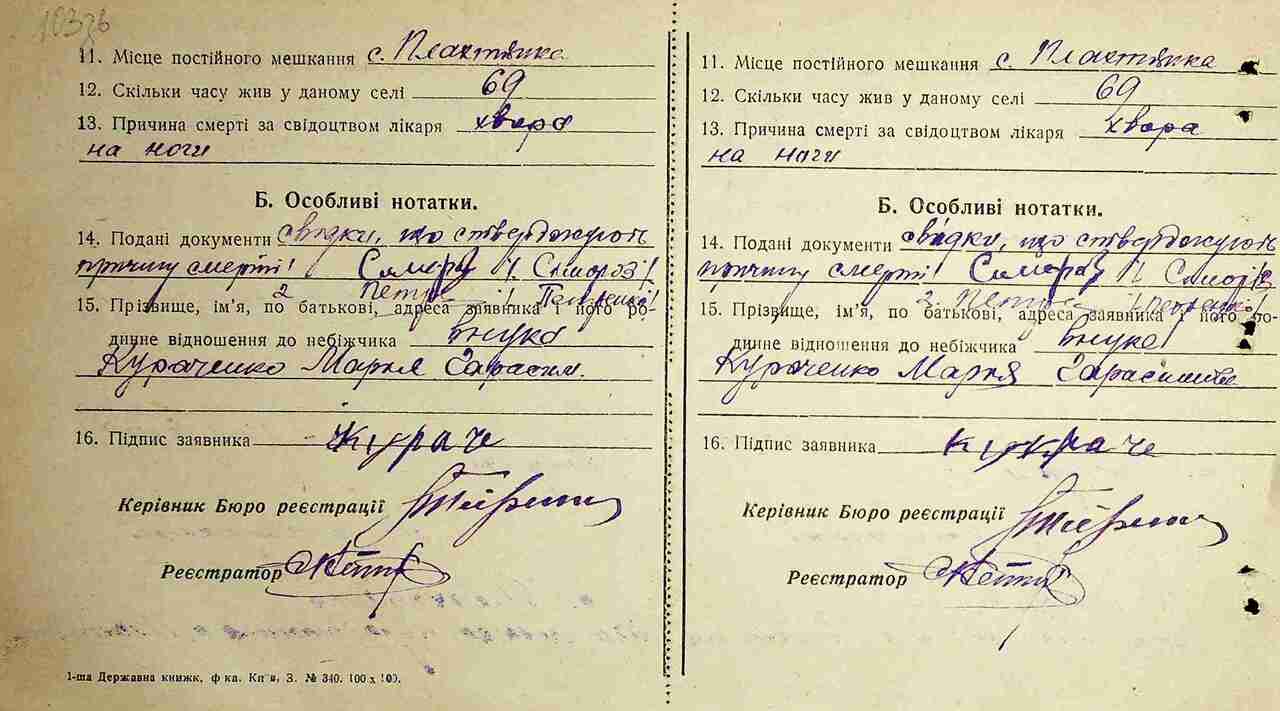 11. Місце постійного мешкання с. Плахтянка
12. Скільки часу жив у даному селі 69
13. Причина смерті за свідоцтвом лікаря хвора
на ноги
Б. Особливі нотатки.
14. Подані документи свідки, що стверджують
причину смерті!
15. Прізвище, ім'я, по батькові, адреса заявника і його ро-
динне відношення до небіжчика внука
Кураченко Марія Гарасим.
16. Підпис заявника Кураче
Керівник Бюро реєстрації
Реєстратор
1-ша Державна книжк. ф-ка. Київ, З. № 340. 100 х 100.
11. Місце постійного мешкання с. Плахтянка
12. Скільки часу жив у даному селі 69
13. Причина смерті за свідоцтвом лікаря хвора
на ноги
Б. Особливі нотатки.
14. Подані документи свідки, що стверджують
причину смерті!
15. Прізвище, ім'я, по батькові, адреса заявника і його ро-
динне відношення до небіжчика внука
Кураченко Марія
16. Підпис заявника Кураче
Керівник Бюро реєстрації
Реєстратор